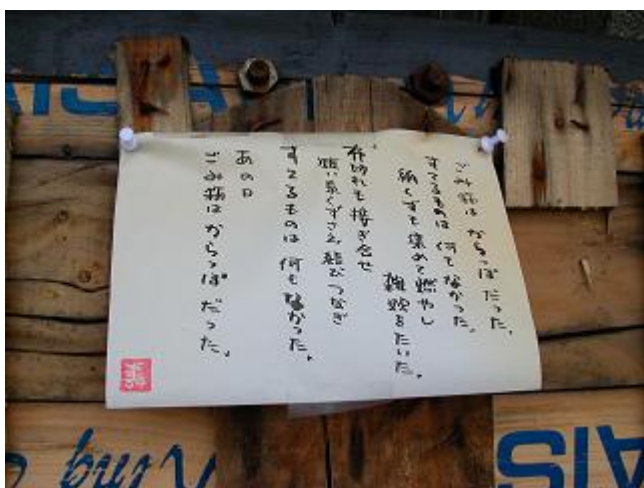 ごみ箱は からっぽだった。
すてるものは 何もなかった。
紙くずを集めて燃やし
雑炊をたいた。
布切れも接ぎ合せ
短い糸くずさえ 結びつなぎ
すてるものは 何もなかった。
あの日
ごみ箱は からっぽ だった。
AISIA
King
AIS